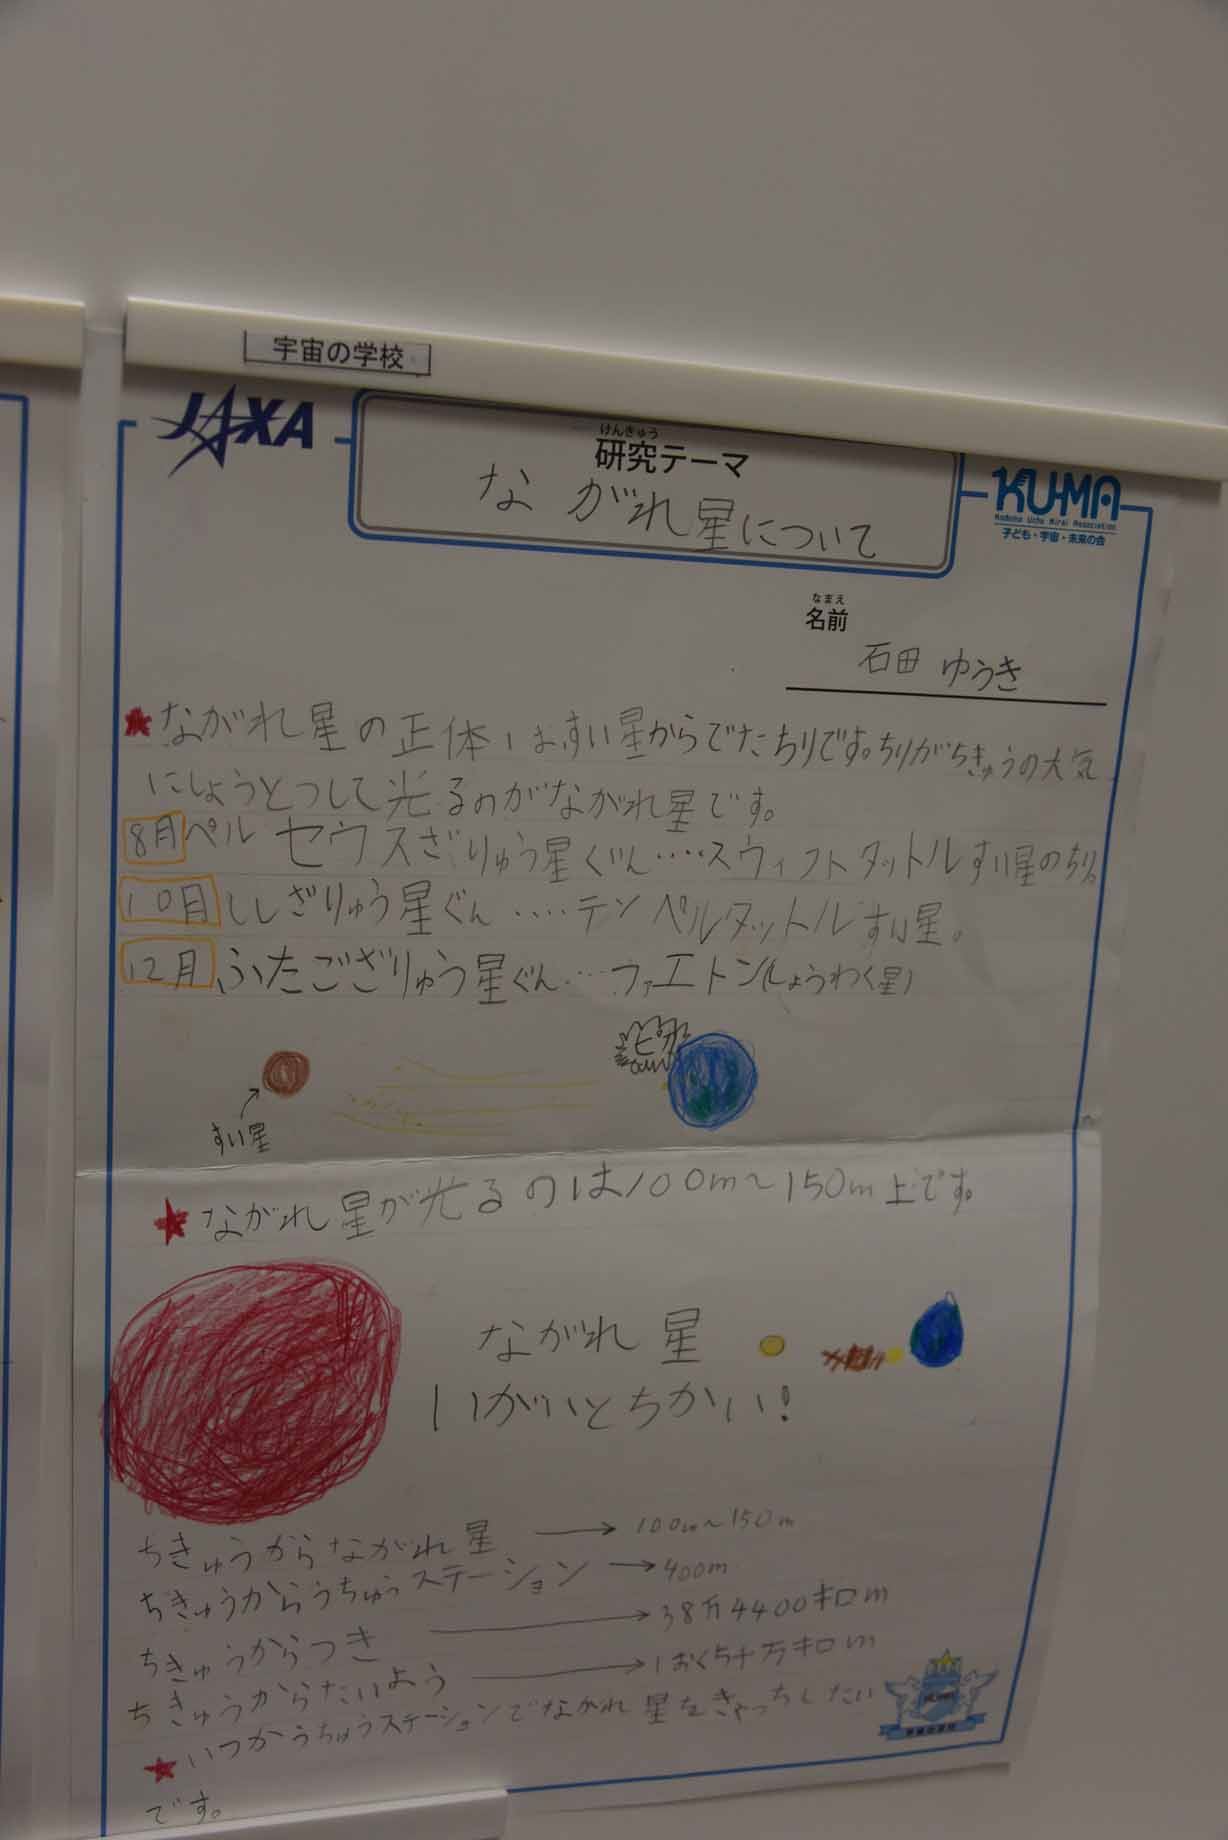 宇宙の学校
JAXA
けんきゅう
研究テーマ
ながれ星について
KU-MA
Kodomo Uchu Mirai Association
子ども・宇宙・未来の会
なまえ
名前
石田 ゆうき
★ながれ星の正体はすい星からでたちりです。ちりがちきゅうの大気
にしょうとつして光るのがながれ星です。
8月ペルセウスざりゅう星ぐん‥‥スウィフトタットルすい星のちり。
10月ししざりゅう星ぐん‥‥テンペルタットルすい星。
12月ふたござりゅう星ぐん‥‥ファエトン(しょうわく星)
ピカ
すい星
★ながれ星が光るのは100m〜150m上です。
ながれ星
いがいとちかい!
ちきゅうからながれ星 → 100m〜150m
ちきゅうからうちゅうステーション → 400m
ちきゅうからつき → 38万4400キロm
ちきゅうからたいよう → 1おく5千万キロm
★いつかうちゅうステーションでながれ星をきゃっちしたい
です。